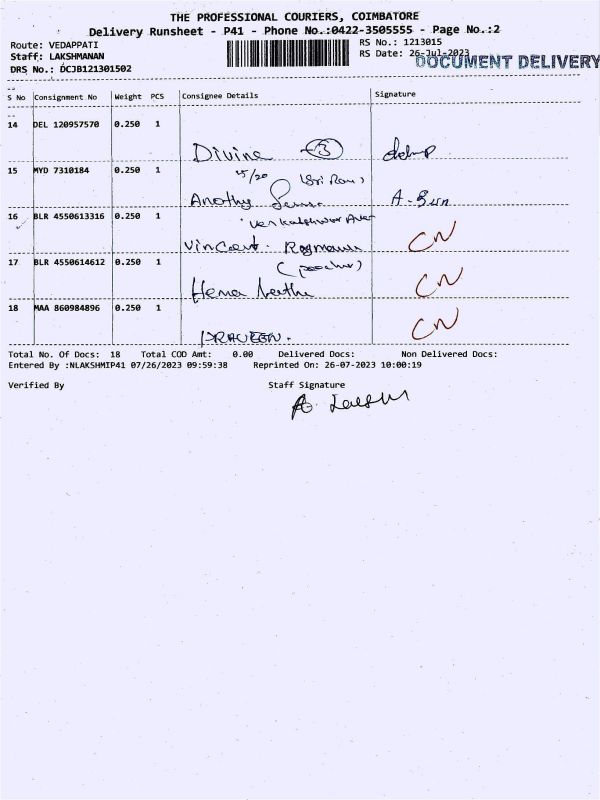 THE PROFESSIONAL COURIERS, COIMBATORE
Delivery Runsheet - P41 - Phone No.:0422-3505555 - Page No.:2
Route: VEDAPPATI
Staff: LAKSHMANAN
DRS No.: DCJB121301502
RS No.: 1213015
RS Date: 26-Jul-2023
DOCUMENT DELIVERY
S No Consignment No Weight PCS Consignee Details Signature
14 DEL 120957570 0.250 1
Divine 3
15 MYD 7310184 0.250 1
15/20
Anothy A-
16 BLR 4550613316 0.250 1
Vincent. CN
17 BLR 4550614612 0.250 1
Hema CN
18 MAA 860984896 0.250 1
PRAVEEN. CN
Total No. Of Docs: 18 Total COD Amt: 0.00 Delivered Docs: Non Delivered Docs:
Entered By :NLAKSHMIP41 07/26/2023 09:59:38 Reprinted On: 26-07-2023 10:00:19
Verified By Staff Signature